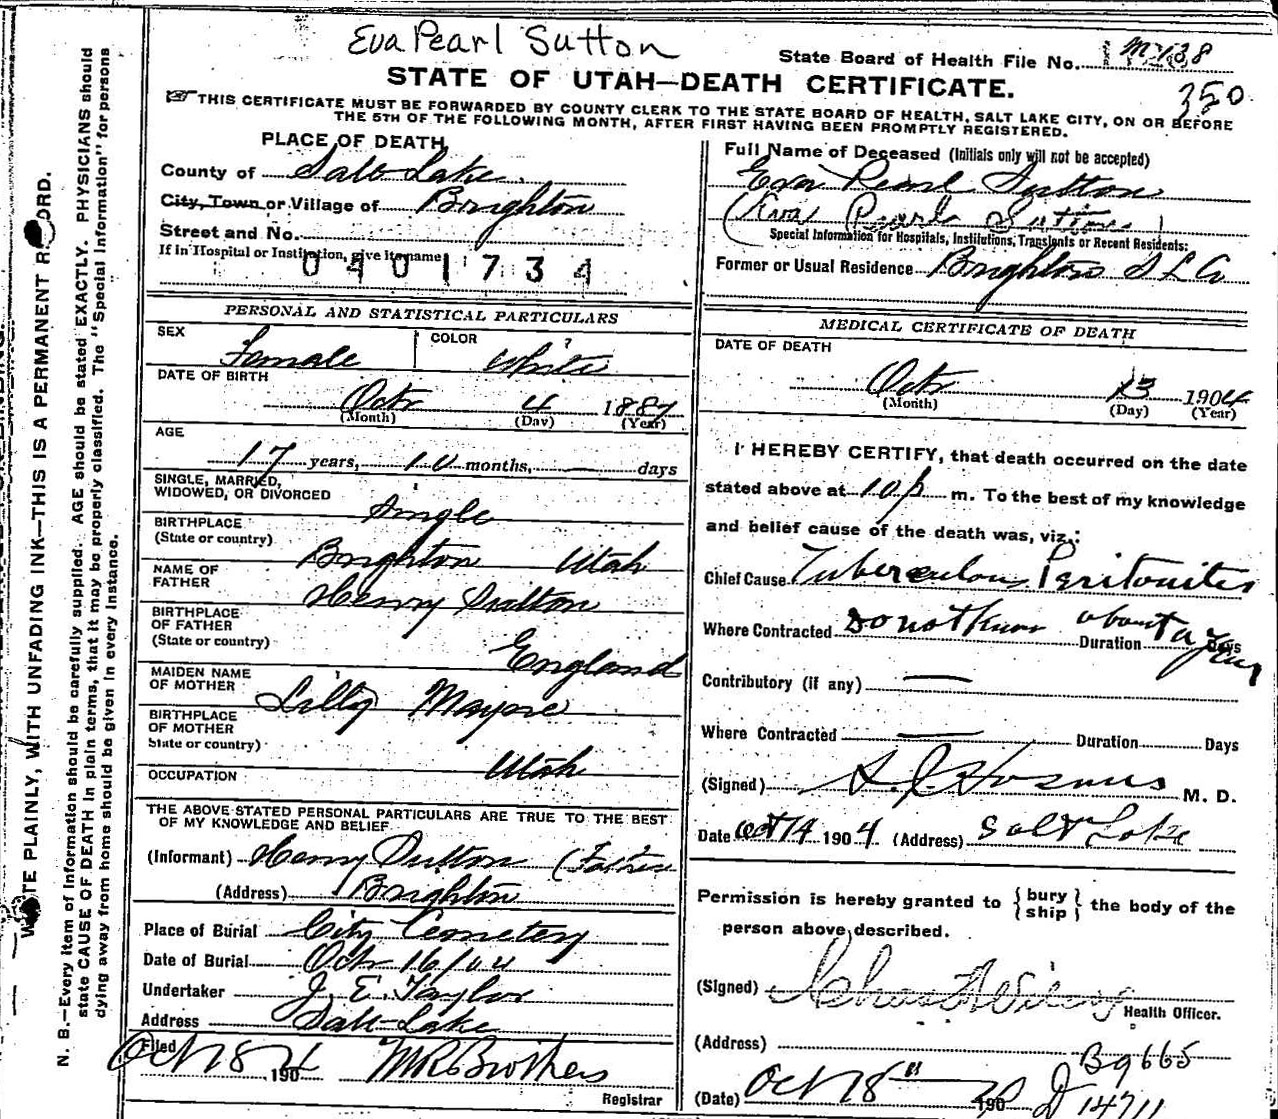 Eva Pearl Sutton
State Board of Health File No.
STATE OF UTAH—DEATH CERTIFICATE.
350
☞ THIS CERTIFICATE MUST BE FORWARDED BY COUNTY CLERK TO THE STATE BOARD OF HEALTH, SALT LAKE CITY, ON OR BEFORE
THE 5TH OF THE FOLLOWING MONTH, AFTER FIRST HAVING BEEN PROMPTLY REGISTERED.
PLACE OF DEATH
County of Salt Lake.
City, Town or Village of Brighton
Street and No.
If in Hospital or Institution, give its name
0401734
PERSONAL AND STATISTICAL PARTICULARS
SEX Female COLOR White
DATE OF BIRTH
Oct 4 1887
(Month) (Day) (Year)
AGE
17 years, 10 months, — days
SINGLE, MARRIED,
WIDOWED, OR DIVORCED Single
BIRTHPLACE
(State or country) Brighton Utah
NAME OF
FATHER Henry Sutton
BIRTHPLACE
OF FATHER
(State or country) England
MAIDEN NAME
OF MOTHER Lilly
BIRTHPLACE
OF MOTHER
State or country) Utah
OCCUPATION
THE ABOVE STATED PERSONAL PARTICULARS ARE TRUE TO THE BEST
OF MY KNOWLEDGE AND BELIEF
(Informant) Henry Sutton (Father
(Address) Brighton
Place of Burial City Cemetery
Date of Burial Oct 16/04
Undertaker J. E. Taylor
Address Salt Lake
Filed Oct 18 190
M R Brothers
Registrar
Full Name of Deceased (Initials only will not be accepted)
Eva Pearl Sutton
(Eva Pearl Sutton)
Special Information for Hospitals, Institutions, Transients or Recent Residents:
Former or Usual Residence Brighton S L Co
MEDICAL CERTIFICATE OF DEATH
DATE OF DEATH
Oct 13 1904
(Month) (Day) (Year)
I HEREBY CERTIFY, that death occurred on the date
stated above at 10 p m. To the best of my knowledge
and belief cause of the death was, viz.:
Chief Cause Tuberculous Peritonitis
Where Contracted Do not know Duration about a year Days
Contributory (if any) —
Where Contracted — Duration Days
(Signed) M. D.
Date Oct 14 1904 (Address) Salt Lake
Permission is hereby granted to {bury
ship} the body of the
person above described.
(Signed) Health Officer.
(Address)
B9665
(Date) Oct 18" 190
D 14711
WRITE PLAINLY, WITH UNFADING INK—THIS IS A PERMANENT RECORD.
N. B.—Every item of information should be carefully supplied. AGE should be stated EXACTLY. PHYSICIANS should
state CAUSE OF DEATH in plain terms, that it may be properly classified. The "Special Information" for persons
dying away from home should be given in every instance.